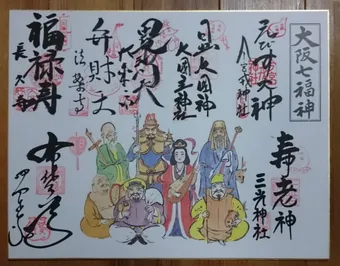 大阪七福神
ゑびす大神
今宮戎神社
大国神
大国主神社
毘沙門天
大乗坊
弁財天
法案寺
福禄寿
長久寺
寿老神
三光神社
布袋尊
四天王寺